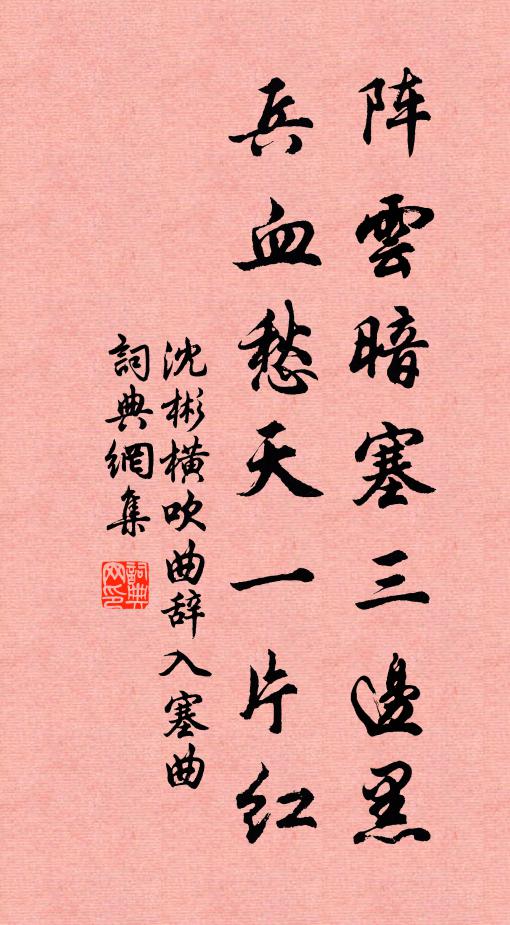 阵雲暗塞三邊黑
兵血愁天一片红
沈彬橫吹曲辞入塞曲
詞典網集
詞典网印